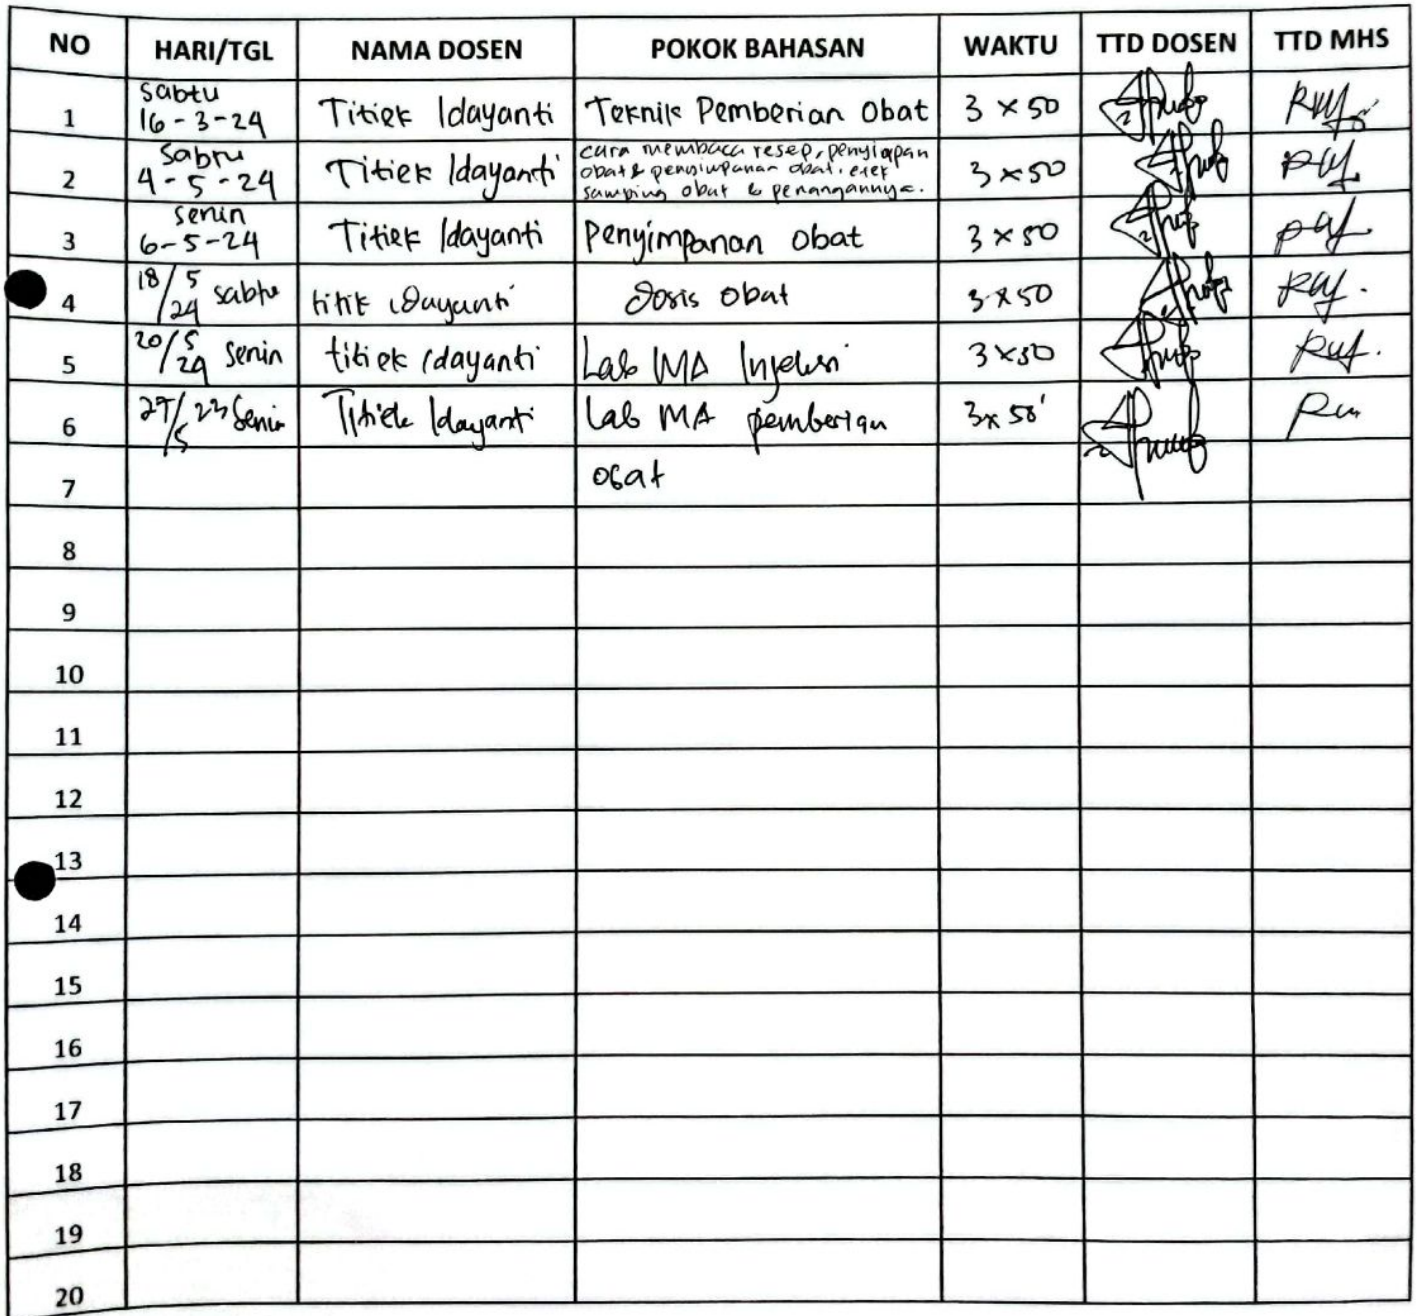 NO HARI/TGL NAMA DOSEN POKOK BAHASAN WAKTU TTD DOSEN TTD MHS
1 Sabtu 16-3-24 Titiek Idayanti Teknik Pemberian Obat 3 x 50
2 Sabtu 4-5-24 Titiek Idayanti cara membaca resep, penyiapan
obat & penyimpanan obat, efek
samping obat & penangannya. 3 x 50
3 senin 6-5-24 Titiek Idayanti Penyimpanan Obat 3 x 50
4 18/5 24 sabtu titik idayanti Dosis Obat 3 x 50
5 20/5 24 senin titiek idayanti Lab MA Injeksi 3 x 50
6 27/5 23 Senin Titiek Idayanti Lab MA pemberian 3 x 50'
7 obat
8
9
10
11
12
13
14
15
16
17
18
19
20